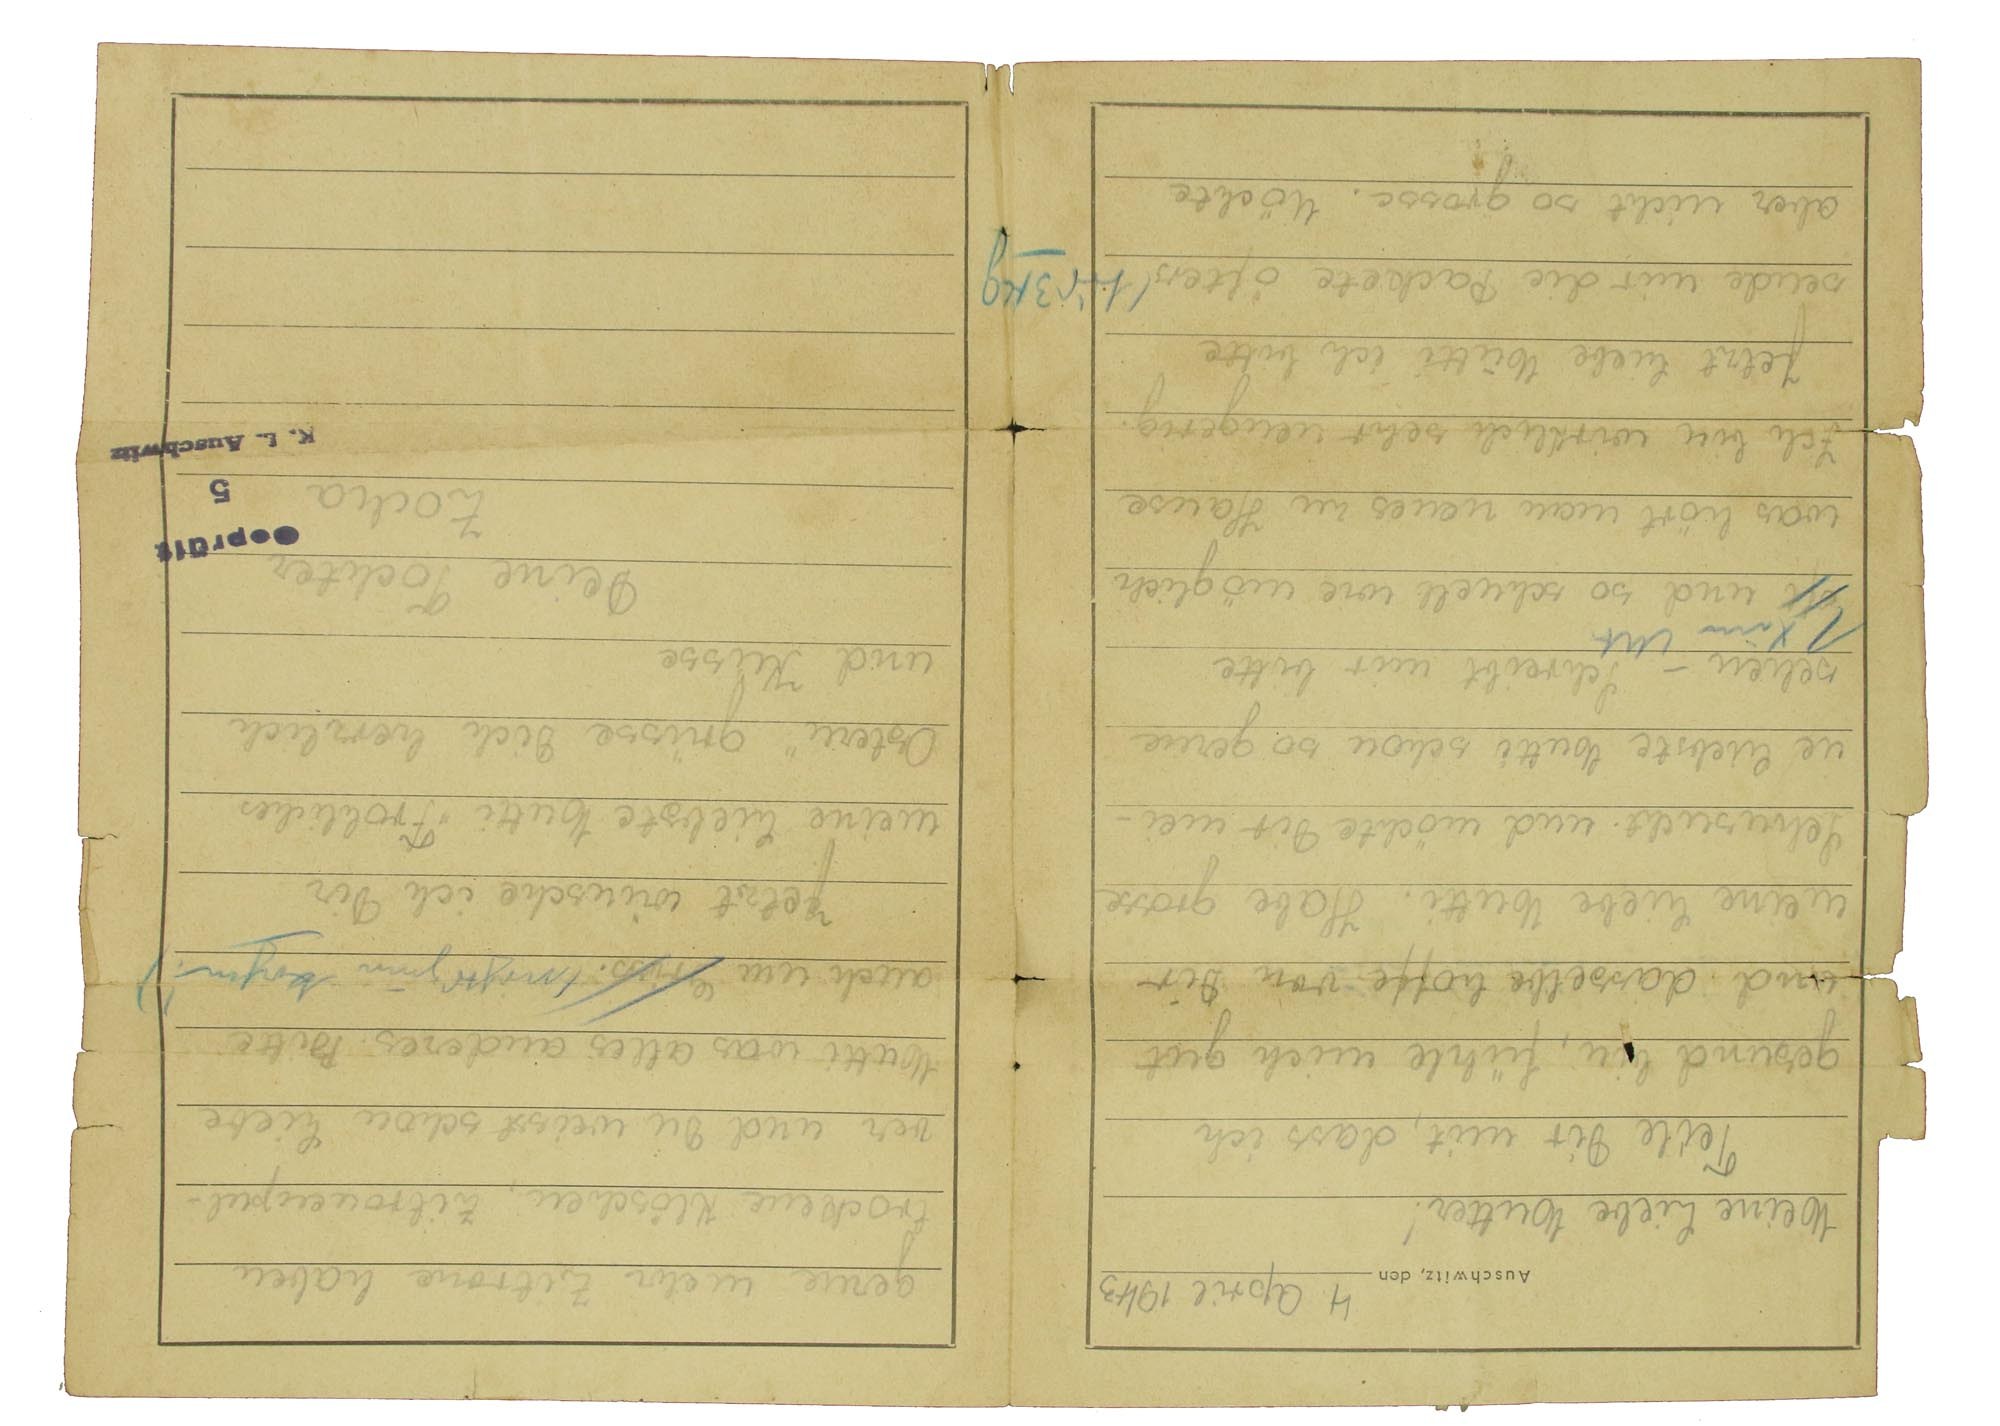 Auschwitz, den 4 April 1943
Meine Liebe Mutter!
Teile Dir mit, dass ich
gesund bin, fühle mich gut
und dasselbe hoffe von Dir
meine Liebe Mutti. Habe grosse
Sehnsucht und möchte Dir mei-
ne Liebste Mutti schon so gerne
sehen – Schreibt mir bitte
und so schnell wie möglich
was hört man neues zu Hause
Ich bin wirklich sehr neugerig.
Jetzt Liebe Mutti ich bitte
sende mir die Packete öfters
3 Kg
aber nicht so grosse. Möchte
gerne mehr Zitrone haben
trockene Klöschen, Zitronenpul-
ver und Du weisst schon Liebe
Mutti was alles anderes. Bitte
auch um
Jetzt wünsche ich Dir
meine Liebste Mutti „Fröhliches
Ostern" grüsse Dich herzlich
und Küsse
Deine Tochter
Zocha
Geprüft
5
K. L. Auschwitz